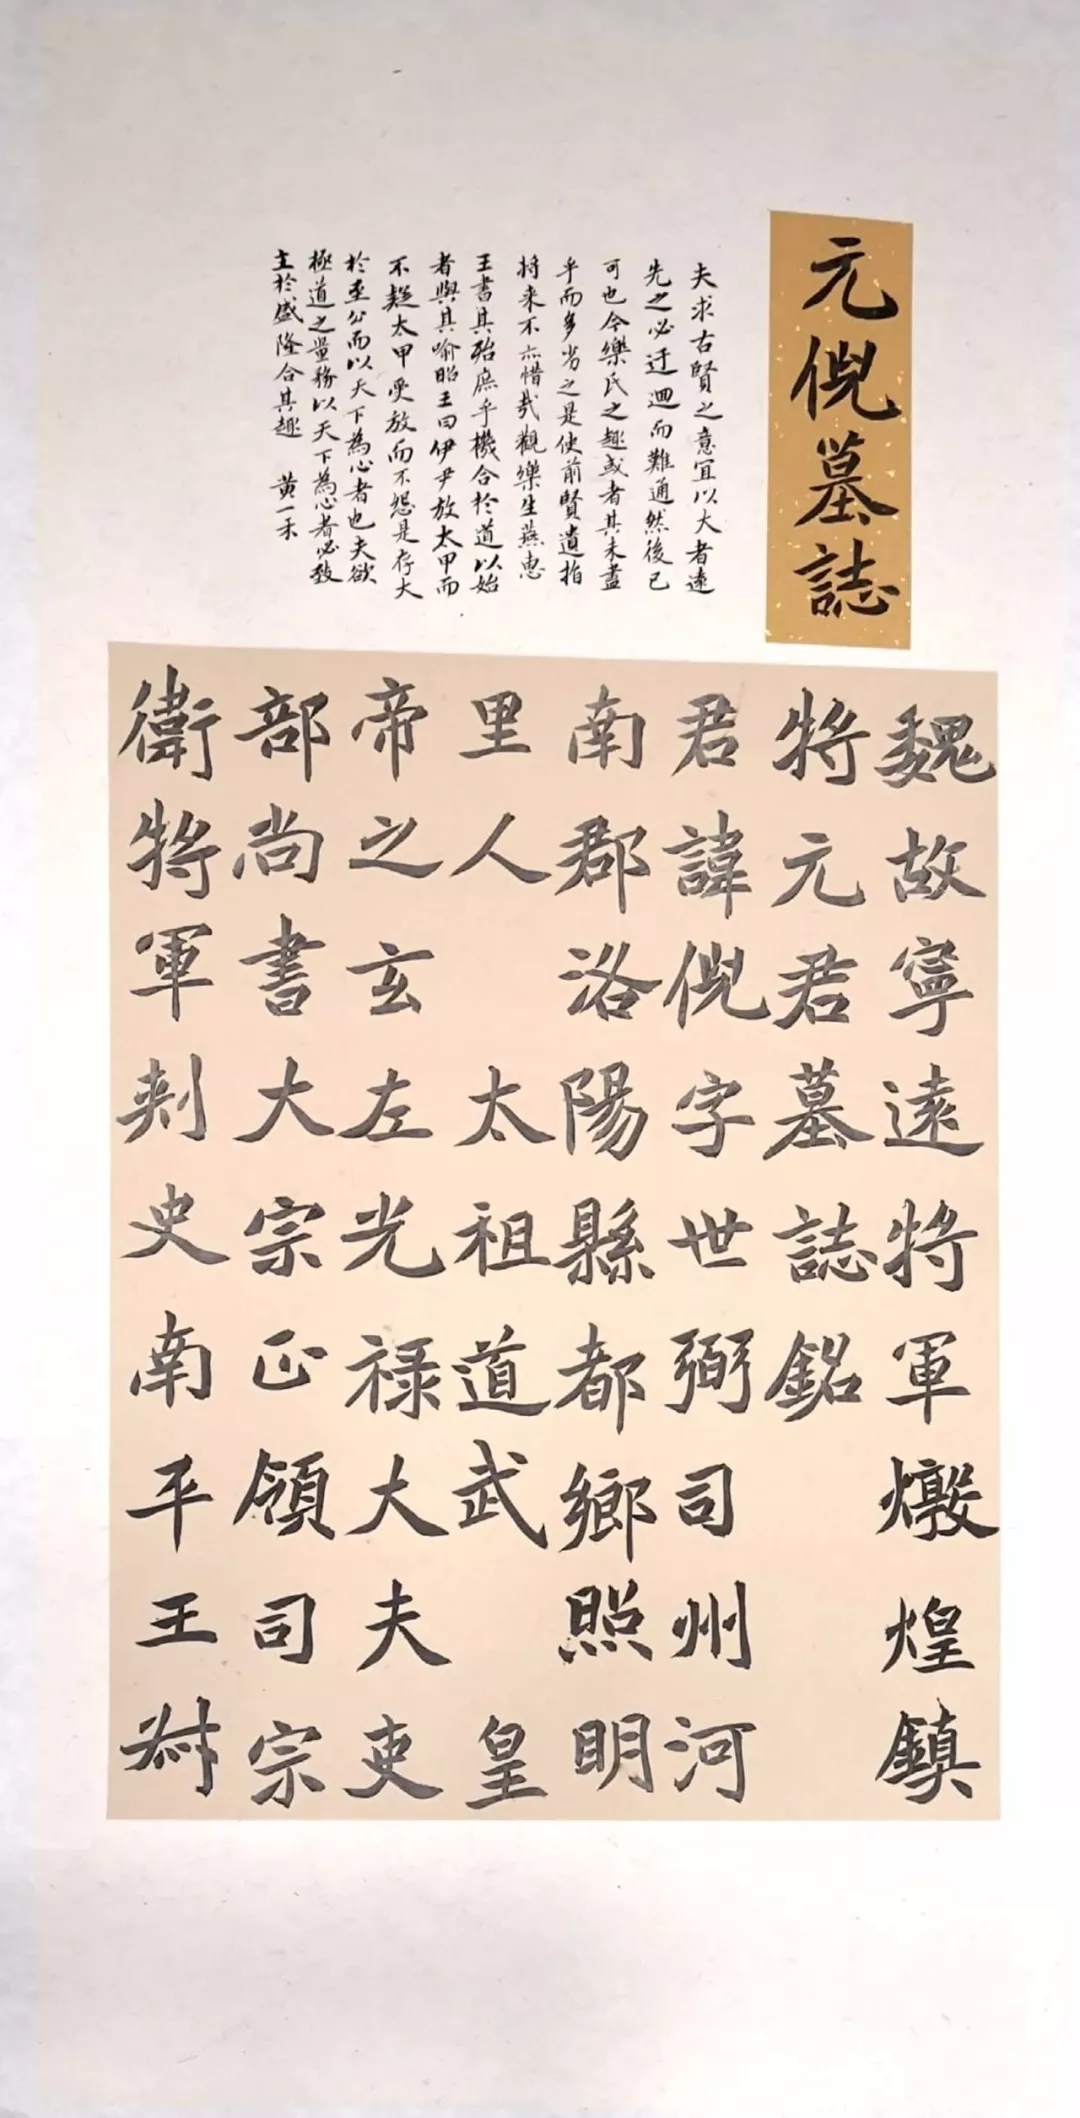 元倪墓誌
夫求古賢之意宜以大者遠
先之必迂迴而難通然後已
可也今樂氏之趣或者其未盡
乎而多劣之是使前賢遺指
將来不亦惜哉觀樂生燕惠
王書其殆庶乎機合於道以始
者與其喻昭王曰伊尹放太甲而
不疑太甲受放而不怨是存大
於至公而以天下為心者也夫欲
極道之量務以天下為心者必致
主於盛隆合其趣 黄一禾
魏故寧遠将軍燉煌鎮
将元君墓誌銘
君諱倪字世弼司州河
南郡洛陽縣都鄉照明
里人 太祖道武 皇
帝之玄左光禄大夫吏
部尚書大宗正領司宗
衛将軍刺史南平王